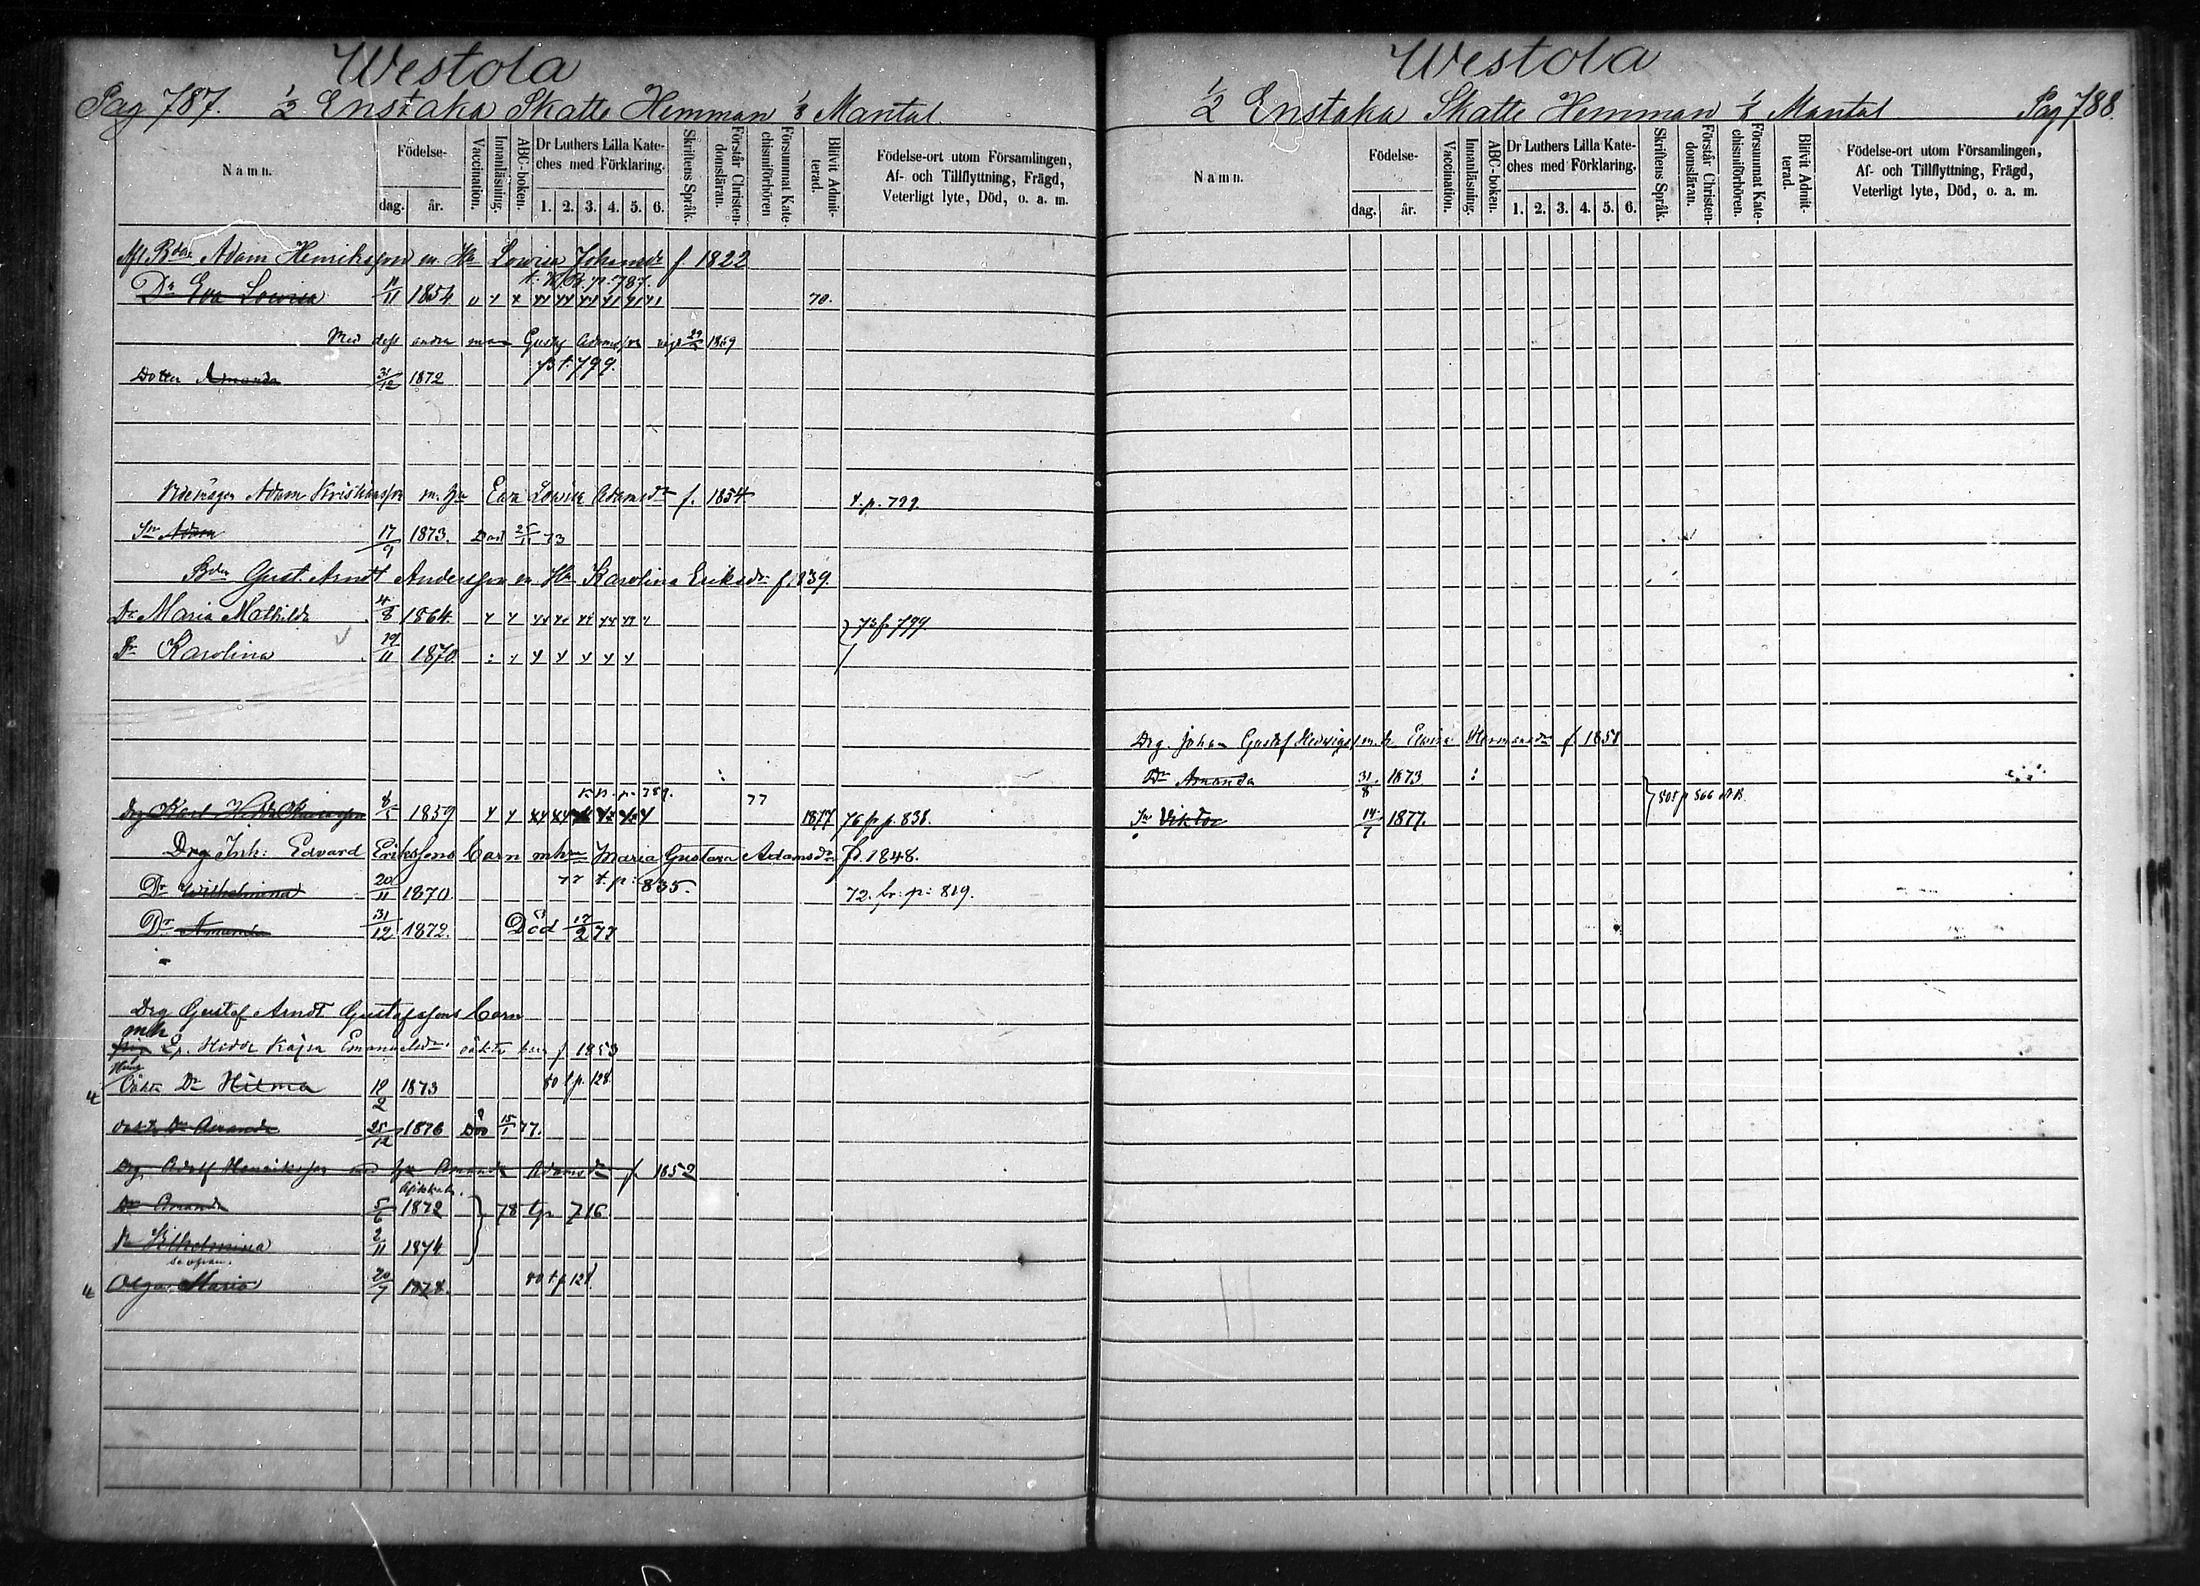 Westola
Pag 787. 1/2 Enstaka Skatte Hemman 1/8 Mantal.
Namn.
Födelse-
dag.
år.
Vaccination.
Innanläsning.
ABC-boken.
Dr Luthers Lilla Kate-
ches med Förklaring.
1. 2. 3. 4. 5. 6.
Skriftens Språk.
Förstår Christen-
domsläran.
Försummat Kate-
chismiförhören
Blifvit Admit-
terad.
Födelse-ort utom Församlingen,
Af- och Tillflyttning, Frägd,
Veterligt lyte, Död, o. a. m.
Adam Henriksson en Hu Lowisa Johansdr f 1822
p. 787.
Dr Eva Lowisa 11 1854 70.
Med dess andra man Gustaf Adamsson 1859
p 799.
Dotter Amanda 31/12 1872
Adam Kristiansson m. hu Eva Lowisa Adamsdr f. 1854 t. p. 799
Sn Adam 17/9 1873. Död 73
Bdn Gust. Arndt Andersson en Hu Karolina Eriksdr f. 1839.
Dr Maria Mathilda 4/8 1864. 73 p 799.
Dr Karolina 19/11 1870
p. 789. 77
Drg Karl 1859 1877 76 p p. 838.
Drg Joh: Edvard Erikssons barn m hu Maria Gustava Adamsdr f. 1848.
77 t. p: 835.
Dr Wilhelmina 20/11 1870 72. fr: p: 819.
Dr Amanda 31/12 1872. Död 17/2 77
Drg Gustaf Arndt Gustafssons barn
mh
Hedda Kajsa Emanuelsdr oäkta barn f 1853
Oäkta Dr Hilma 12/2 1873 80 t p. 128
oäkta Dr Amanda 25/12 1876 Död 15/1 77.
Drg Adolf Henriksson med hu Amanda Adamsdr f 1852
Dr Amanda 5/6 1872 78 tp 716
Dr Vilhelmina 2/11 1874
Olga Maria 20/7 1878. 80 t p 128
Westola
1/2 Enstaka Skatte Hemman 1/8 Mantal Pag 788.
Namn.
Födelse-
dag.
år.
Vaccination.
Innanläsning.
ABC-boken.
Dr Luthers Lilla Kate-
ches med Förklaring.
1. 2. 3. 4. 5. 6.
Skriftens Språk.
Förstår Christen-
domsläran.
Försummat Kate-
chismiförhören.
Blifvit Admit-
terad.
Födelse-ort utom Församlingen,
Af- och Tillflyttning, Frägd,
Veterligt lyte, Död, o. a. m.
Drg. Johan Gustaf m. h. Hermansdr f. 1851
Dr Amanda 31/8 1873
Sn Viktor 14/7 1877. p 566